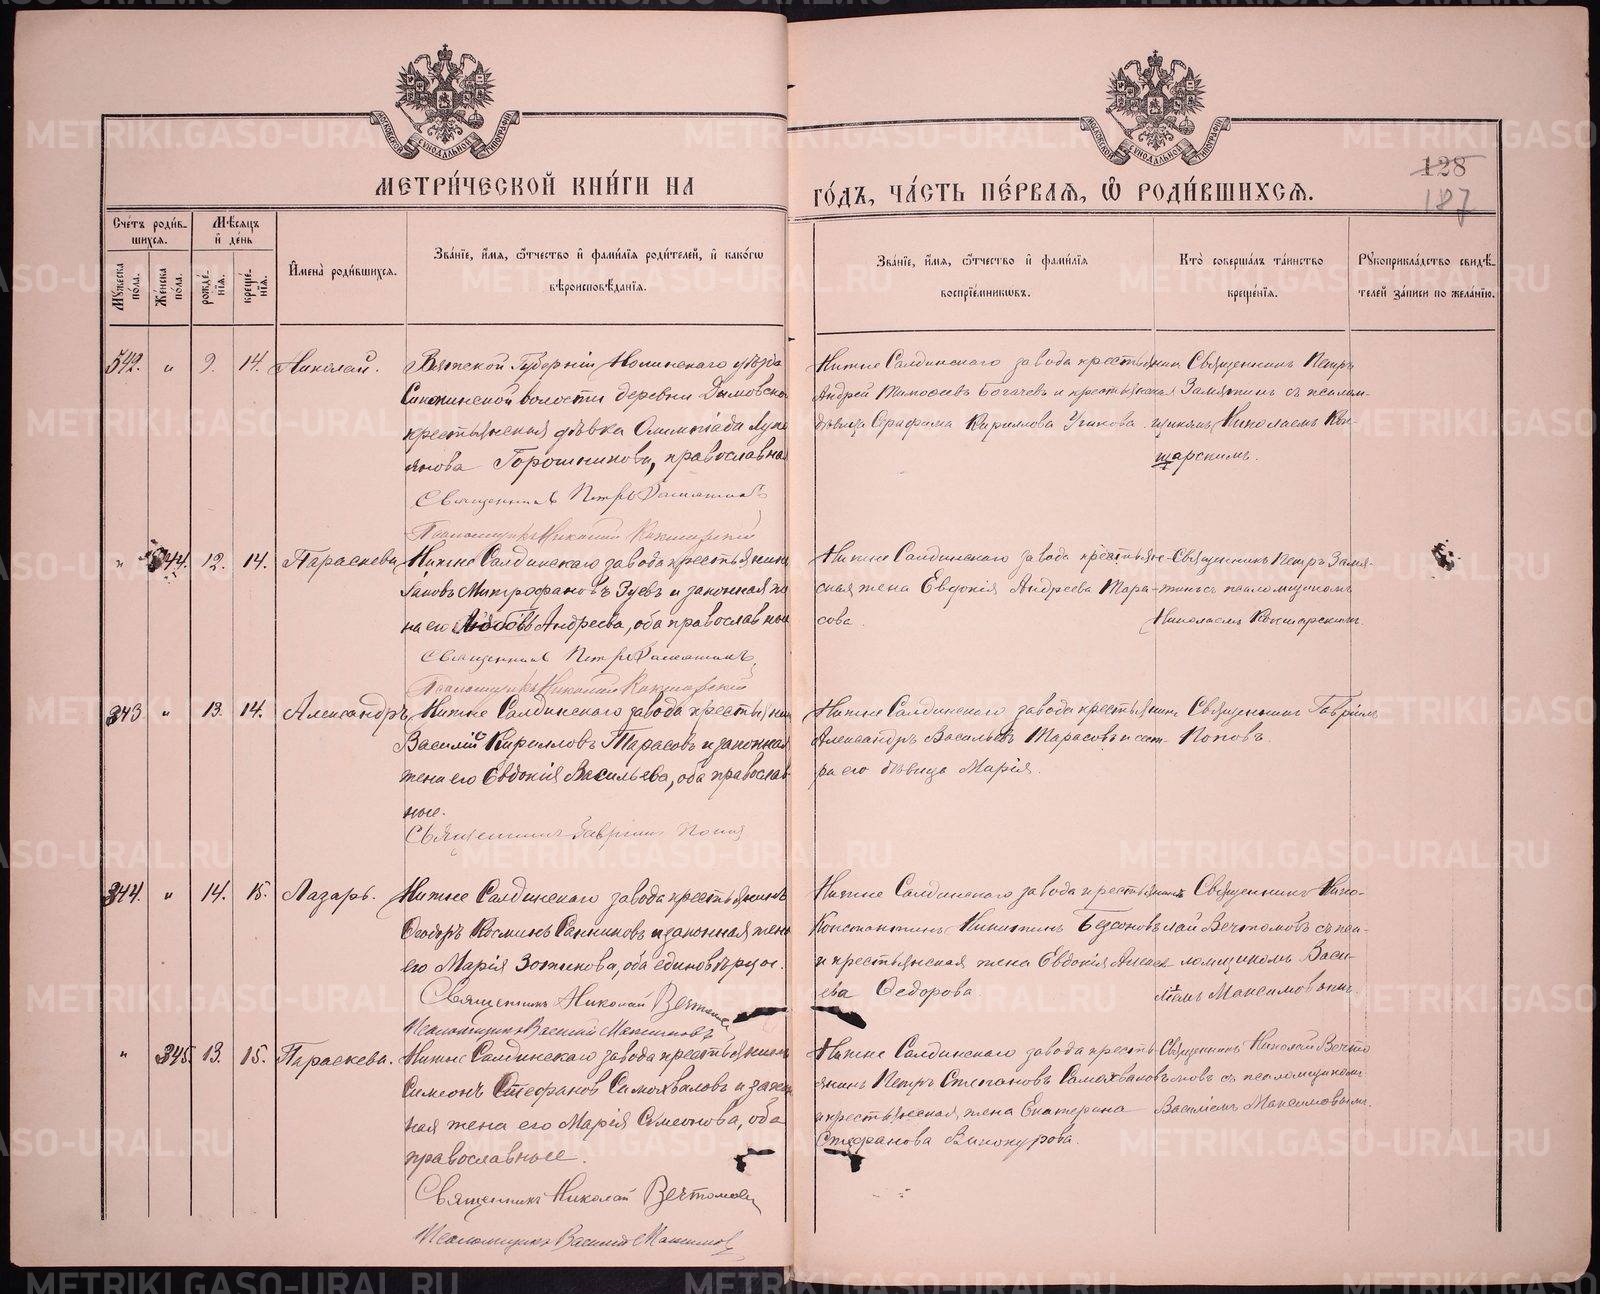 МОСКОВСКОЙ СѴНОДАЛЬНОЙ ТИПОГРАФІИ
МОСКОВСКОЙ СѴНОДАЛЬНОЙ ТИПОГРАФІИ
МЕТРИ́ЧЕСКОЙ КНИ́ГИ НА
ГО́ДЪ, ЧА́СТЬ ПЕ́РВАЯ, Ѽ РОДИ́ВШИХСЯ.
128
187
Сче́тъ роди́в-
шихся.
Мѣ́сяцъ
и҆ де́нь
Мꙋ́жеска по́ла.
Же́нска по́ла.
рожде́-
нїя.
креще́-
нїя.
И҆мена̀ роди́вшихся.
Зва́нїе, и҆́мя, ѻ҆́тчество и҆ фами́лїя роди́телей, и҆ како́гѡ
вѣроисповѣ́данїя.
Зва́нїе, и҆́мя, ѻ҆́тчество и҆ фами́лїя
воспрїе́мникѡвъ.
Кто̀ соверша́лъ та́инство
креще́нїя.
Рꙋкоприкла́дство свидѣ́-
телей за́писи по жела́нїю.
342. " 9. 14. Николай.
Вятской Губерніи Нолинскаго уѣзда
волости деревни Дымовской
крестьянская дѣвка Олимпіада Луки-
янова Горошникова, православная
Священникъ Петръ Замятинъ
Псаломщикъ Николай Кокшарскій
Нижне Салдинскаго завода крестьянинъ
Андрей Тимофеевъ Богачевъ и крестьянская
дѣвица Серафима Кириллова
Священникъ Петръ
Замятинъ съ псалом-
щикомъ Николаемъ Кок-
шарскимъ.
" 344. 12. 14. Параскева
Нижне Салдинскаго завода крестьянинъ
Іаковъ Митрофановъ Зуевъ и законная же-
на его Любовь Андреева, оба православные
Священникъ Петръ Замятинъ
Псаломщикъ Николай Кокшарскій
Нижне Салдинскаго завода крестьян-
ская жена Евдокія Андреева Тара-
сова.
Священникъ Петръ Замя-
тинъ съ псаломщикомъ
Николаемъ Кокшарскимъ.
343 " 13. 14. Александръ
Нижне Салдинскаго завода крестьянинъ
Василій Кирилловъ Тарасовъ и законная
жена его Евдокія Васильева, оба православ-
ные.
Священникъ Гавріилъ Поповъ
Нижне Салдинскаго завода крестьянинъ
Александръ Васильевъ Тарасовъ и сест-
ра его дѣвица Марія.
Священникъ Гавріилъ
Поповъ.
344. " 14. 15. Лазарь.
Нижне Салдинскаго завода крестьянинъ
Ѳеодоръ Косминъ Санниковъ и законная жена
его Марія Зотикова, оба единовѣрцы.
Священникъ Николай Вечтомовъ
Псаломщикъ Василій Максимовъ
Нижне Салдинскаго завода крестьянинъ
Константинъ Никитинъ Бессоновъ
и крестьянская жена Евдокія Алексе-
ева Ѳедорова
Священникъ Нико-
лай Вечтомовъ съ пса-
ломщикомъ Васи-
ліемъ Максимовымъ.
" 345. 13. 15. Параскева.
Нижне Салдинскаго завода крестьянинъ
Симеонъ Стефановъ Самохваловъ и закон-
ная жена его Марія Симеонова, оба
православные.
Священникъ Николай Вечтомовъ
Псаломщикъ Василій Максимовъ
Нижне Салдинскаго завода кресть-
янинъ Петръ Степановъ Самохваловъ
и крестьянская жена Екатерина
Стефанова Винокурова.
Священникъ Николай Вечто-
мовъ съ псаломщикомъ
Василіемъ Максимовымъ.
METRIKI.GASO-URAL.RU